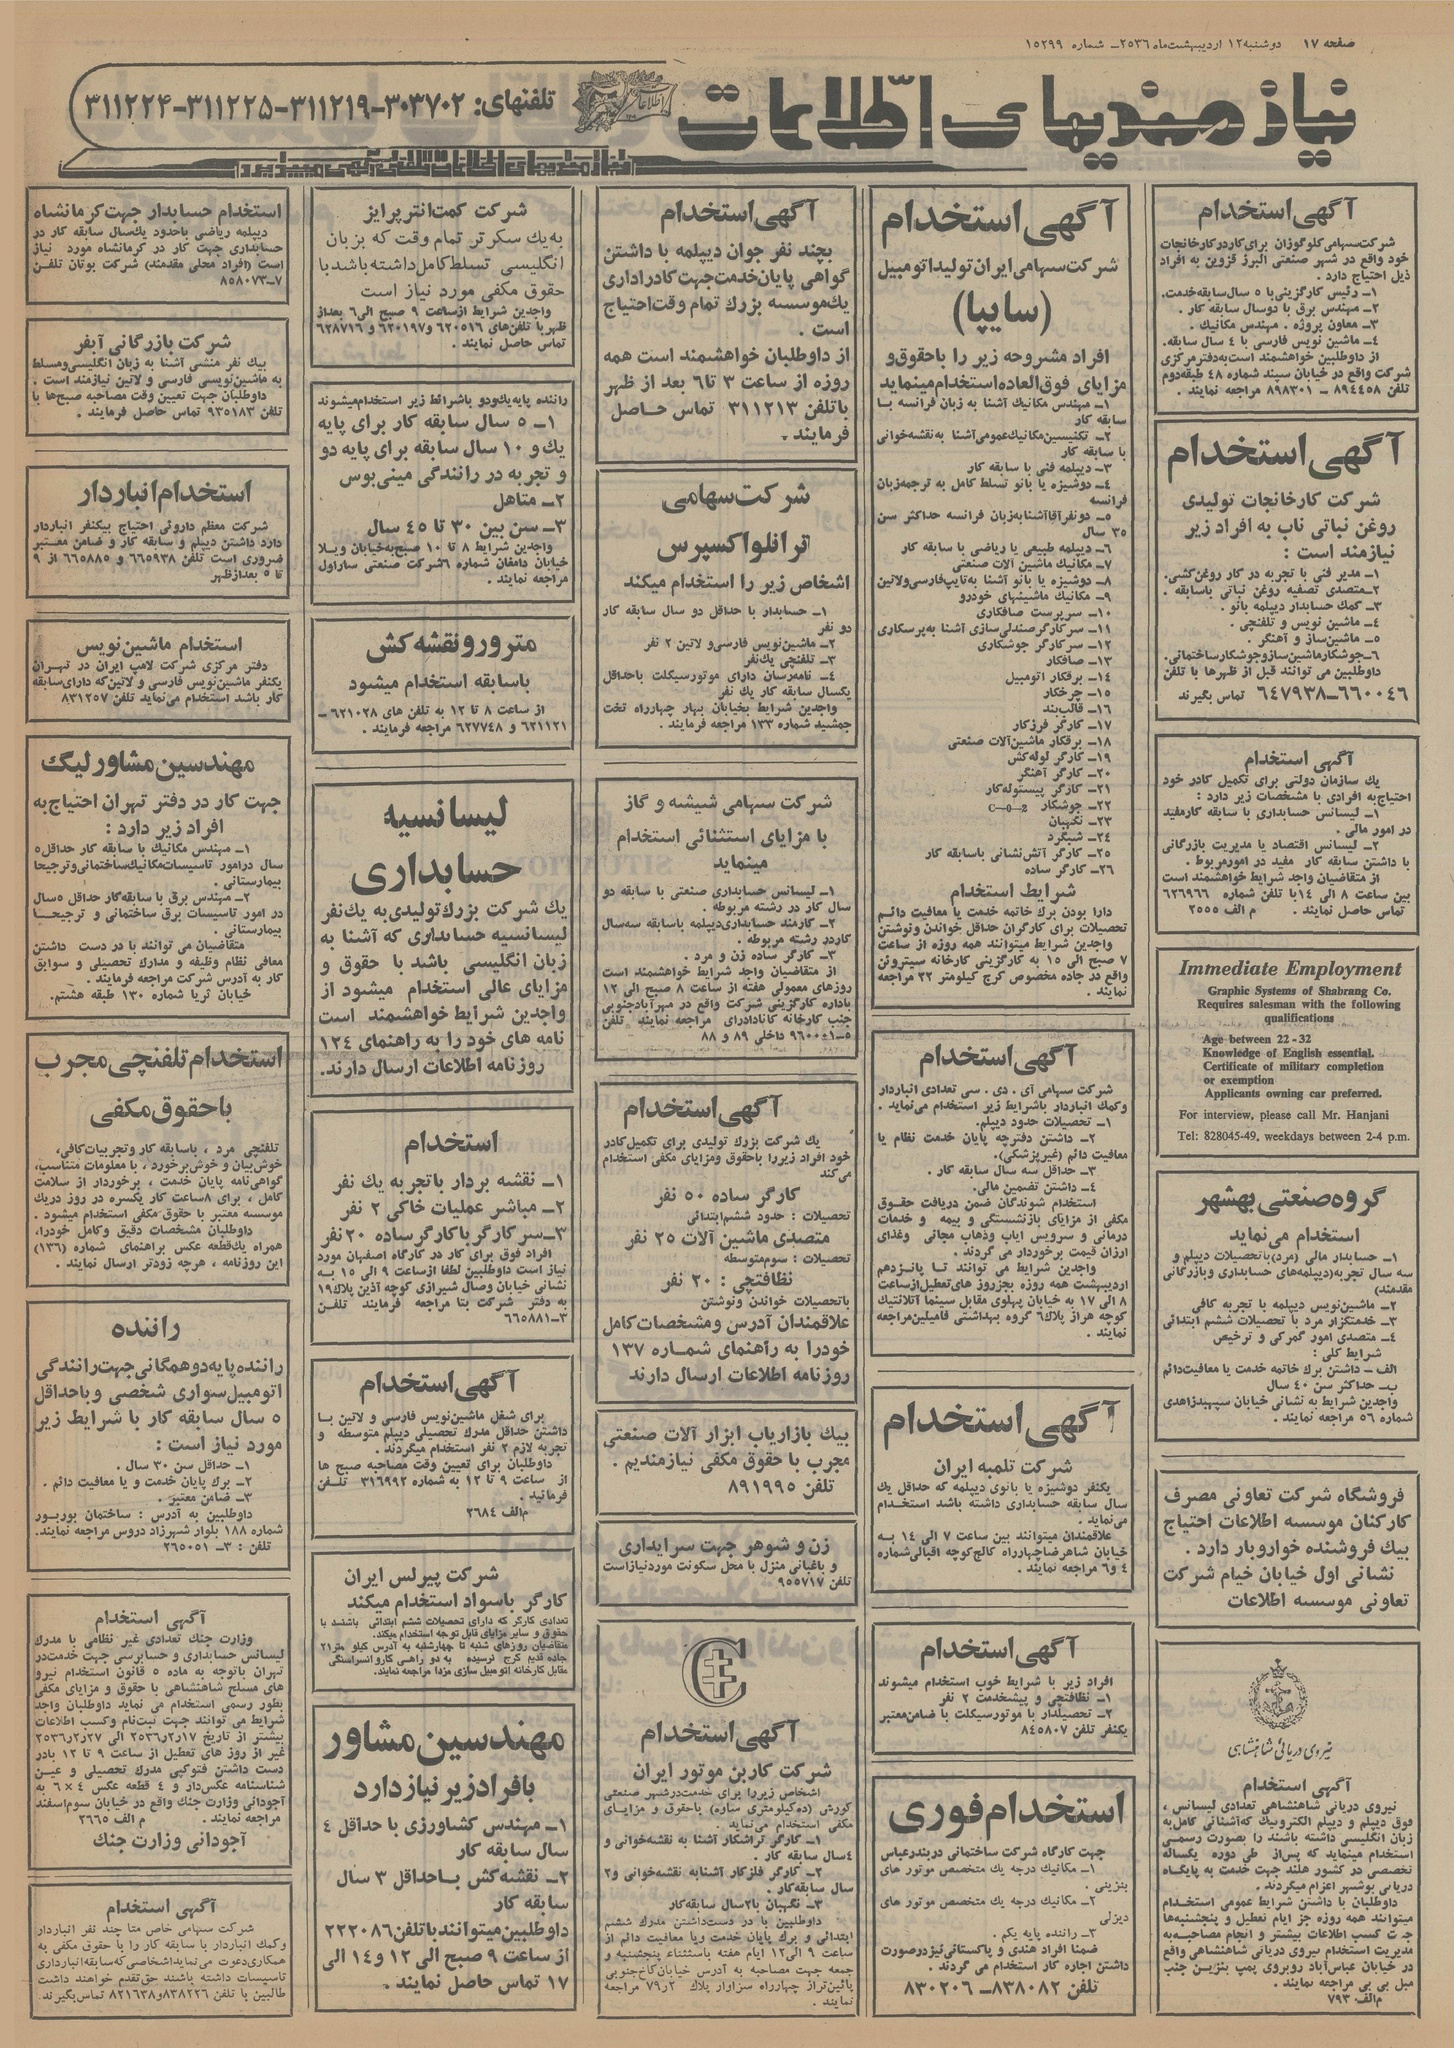 صفحه ۱۷ دوشنبه ۱۲ اردیبهشت ماه ۲۵۳۶ـ شماره ۱۵۲۹۹
نیازمندیهای اطلاعات
تلفنهای: ۳۰۳۷۰۲-۳۱۱۲۱۹-۳۱۱۲۲۵-۳۱۱۲۲۴
آگهی استخدام
شرکت سهامی کلوگوزان برای کار در کارخانجات
خود واقع در شهر صنعتی البرز قزوین به افراد
ذیل احتیاج دارد.
۱ـ رئیس کارگزینی با ۵ سال سابقه خدمت.
۲ـ مهندس برق با دو سال سابقه کار.
۳ـ معاون پروژه، مهندس مکانیک.
۴ـ ماشین نویس فارسی با ۴ سال سابقه.
از داوطلبین خواهشمند است به دفتر مرکزی
شرکت واقع در خیابان سپند شماره ۴۸ طبقه دوم
تلفن ۸۹۴۴۵۸ ـ ۸۹۸۳۰۱ مراجعه نمایند.
آگهی استخدام
شرکت کارخانجات تولیدی
روغن نباتی ناب به افراد زیر
نیازمند است:
۱ـ مدیر فنی با تجربه در کار روغن کشی.
۲ـ متصدی تصفیه روغن نباتی باسابقه.
۳ـ کمک حسابدار دیپلمه بانو.
۴ـ ماشین نویس و تلفنچی.
۵ـ ماشین ساز و آهنگر.
۶ـ جوشکار ماشین ساز و جوشکار ساختمانی.
داوطلبین می توانند قبل از ظهرها با تلفن
۶۶۰۰۴۶ـ۶۴۷۹۳۸ تماس بگیرند
آگهی استخدام
یک سازمان دولتی برای تکمیل کادر خود
احتیاج به افرادی با مشخصات زیر دارد:
۱ـ لیسانس حسابداری با سابقه کار مفید
در امور مالی.
۲ـ لیسانس اقتصاد یا مدیریت بازرگانی
با داشتن سابقه کار مفید در امور مربوط.
از متقاضیان واجد شرایط خواهشمند است
بین ساعت ۸ الی ۱۴ با تلفن شماره ۶۲۶۹۶۶
تماس حاصل نمایند. م الف ۲۵۵۵
Immediate Employment
Graphic Systems of Shabrang Co.
Requires salesman with the following
qualifications
Age between 22-32
Knowledge of English essential.
Certificate of military completion
or exemption
Applicants owning car preferred.
For interview, please call Mr. Hanjani
Tel: 828045-49, weekdays between 2-4 p.m.
گروه صنعتی بهشهر
استخدام می نماید
۱ـ حسابدار مالی (مرد) با تحصیلات دیپلم و
سه سال تجربه (دیپلمه های حسابداری و بازرگانی
مقدمند)
۲ـ ماشین نویس دیپلمه با تجربه کافی
۳ـ خدمتگزار مرد با تحصیلات ششم ابتدائی
۴ـ متصدی امور گمرکی و ترخیص
شرایط کلی:
الف ـ داشتن برگ خاتمه خدمت یا معافیت دائم
ب ـ حداکثر سن ۴۰ سال
واجدین شرایط به نشانی خیابان سپهبد زاهدی
شماره ۵۶ مراجعه نمایند.
فروشگاه شرکت تعاونی مصرف
کارکنان موسسه اطلاعات احتیاج
بیک فروشنده خواروبار دارد.
نشانی اول خیابان خیام شرکت
تعاونی موسسه اطلاعات
نیروی دریائی شاهنشاهی
آگهی استخدام
نیروی دریائی شاهنشاهی تعدادی لیسانس،
فوق دیپلم و دیپلم الکترونیک که آشنائی کامل به
زبان انگلیسی داشته باشند را بصورت رسمی
استخدام مینماید که پس از طی دوره یکساله
تخصصی در کشور هلند جهت خدمت به پایگاه
دریائی بوشهر اعزام میگردند.
داوطلبان با داشتن شرایط عمومی استخدام
میتوانند همه روزه جز ایام تعطیل و پنجشنبه ها
جهت کسب اطلاعات بیشتر و انجام مصاحبه به
مدیریت استخدام نیروی دریائی شاهنشاهی واقع
در خیابان عباس آباد روبروی پمپ بنزین جنب
مبل بی بی مراجعه نمایند.
م الف ۷۹۳
آگهی استخدام
شرکت سهامی ایران تولید اتومبیل
(سایپا)
افراد مشروحه زیر را با حقوق و
مزایای فوق العاده استخدام مینماید
۱ـ مهندس مکانیک آشنا به زبان فرانسه با
سابقه کار
۲ـ تکنیسین مکانیک عمومی آشنا به نقشه خوانی
با سابقه کار
۳ـ دیپلمه فنی با سابقه کار
۴ـ دوشیزه یا بانو تسلط کامل به ترجمه زبان
فرانسه
۵ـ دو نفر آقا آشنا به زبان فرانسه حداکثر سن
۳۵ سال
۶ـ دیپلمه طبیعی یا ریاضی با سابقه کار
۷ـ مکانیک ماشین آلات صنعتی
۸ـ دوشیزه یا بانو آشنا به تایپ فارسی و لاتین
۹ـ مکانیک ماشینهای خودرو
۱۰ـ سرپرست صافکاری
۱۱ـ سرکارگر صندلی سازی آشنا به پرسکاری
۱۲ـ سرکارگر جوشکاری
۱۳ـ صافکار
۱۴ـ برقکار اتومبیل
۱۵ـ چرخکار
۱۶ـ قالب بند
۱۷ـ کارگر فرزکار
۱۸ـ برقکار ماشین آلات صنعتی
۱۹ـ کارگر لوله کش
۲۰ـ کارگر آهنگر
۲۱ـ کارگر پیستوله کار
۲۲ـ جوشکار C-O-2
۲۳ـ نگهبان
۲۴ـ شبگرد
۲۵ـ کارگر آتش نشانی باسابقه کار
۲۶ـ کارگر ساده
شرایط استخدام
دارا بودن برگ خاتمه خدمت یا معافیت دائم
تحصیلات برای کارگران حداقل خواندن و نوشتن
واجدین شرایط میتوانند همه روزه از ساعت
۷ صبح الی ۱۵ به کارگزینی کارخانه سیتروئن
واقع در جاده مخصوص کرج کیلومتر ۲۲ مراجعه
نمایند.
آگهی استخدام
شرکت سهامی آی. دی. سی تعدادی انباردار
و کمک انباردار با شرایط زیر استخدام می نماید.
۱ـ تحصیلات حدود دیپلم.
۲ـ داشتن دفترچه پایان خدمت نظام یا
معافیت دائم (غیر پزشکی).
۳ـ حداقل سه سال سابقه کار.
۴ـ داشتن تضمین مالی.
استخدام شوندگان ضمن دریافت حقوق
مکفی از مزایای بازنشستگی و بیمه و خدمات
درمانی و سرویس ایاب و ذهاب مجانی و غذای
ارزان قیمت برخوردار می گردند.
واجدین شرایط می توانند تا پانزدهم
اردیبهشت همه روزه بجز روز های تعطیل از ساعت
۸ الی ۱۷ به خیابان پهلوی مقابل سینما آتلانتیک
کوچه هراز پلاک ۶ گروه بهداشتی فامیلین مراجعه
نمایند.
آگهی استخدام
شرکت تلمبه ایران
یکنفر دوشیزه یا بانوی دیپلمه که حداقل یک
سال سابقه حسابداری داشته باشد استخدام
می نماید.
علاقمندان میتوانند بین ساعت ۷ الی ۱۴ به
خیابان شاهرضا چهارراه کالج کوچه اقبالی شماره
۴ و ۶ مراجعه نمایند.
آگهی استخدام
افراد زیر با شرایط خوب استخدام میشوند
۱ـ نظافتچی و پیشخدمت ۲ نفر
۲ـ تحصیلدار با موتورسیکلت با ضامن معتبر
یکنفر تلفن ۸۴۵۸۰۷
استخدام فوری
جهت کارگاه شرکت ساختمانی در بندرعباس
۱ـ مکانیک درجه یک متخصص موتور های
بنزینی.
۲ـ مکانیک درجه یک متخصص موتور های
دیزلی
۳ـ راننده پایه یکم.
ضمنا افراد هندی و پاکستانی نیز در صورت
داشتن اجازه کار استخدام می گردند.
تلفن ۸۳۸۰۸۲ـ ۸۳۰۲۰۶
آگهی استخدام
بچند نفر جوان دیپلمه با داشتن
گواهی پایان خدمت جهت کادر اداری
یک موسسه بزرگ تمام وقت احتیاج
است.
از داوطلبان خواهشمند است همه
روزه از ساعت ۳ تا ۶ بعد از ظهر
با تلفن ۳۱۱۲۱۳ تماس حاصل
فرمایند.
شرکت سهامی
ترانلو اکسپرس
اشخاص زیر را استخدام میکند
۱ـ حسابدار با حداقل دو سال سابقه کار
دو نفر
۲ـ ماشین نویس فارسی و لاتین ۲ نفر
۳ـ تلفنچی یک نفر
۴ـ نامه رسان دارای موتورسیکلت باحداقل
یکسال سابقه کار یک نفر
واجدین شرایط بخیابان بهار چهارراه تخت
جمشید شماره ۱۳۳ مراجعه فرمایند.
شرکت سهامی شیشه و گاز
با مزایای استثنائی استخدام
مینماید
۱ـ لیسانس حسابداری صنعتی با سابقه دو
سال کار در رشته مربوطه.
۲ـ کارمند حسابداری دیپلمه باسابقه سه سال
کار در رشته مربوطه.
۳ـ کارگر ساده زن و مرد.
از متقاضیان واجد شرایط خواهشمند است
روزهای معمولی هفته از ساعت ۸ صبح الی ۱۲
باداره کارگزینی شرکت واقع در مهرآباد جنوبی
جنب کارخانه کانادادرای مراجعه نمایند تلفن
داخلی ۸۹ و ۸۸
آگهی استخدام
یک شرکت بزرگ تولیدی برای تکمیل کادر
خود افراد زیر را با حقوق و مزایای مکفی استخدام
می کند
کارگر ساده ۵۰ نفر
تحصیلات: حدود ششم ابتدائی
متصدی ماشین آلات ۲۵ نفر
تحصیلات: سوم متوسطه
نظافتچی: ۲۰ نفر
با تحصیلات خواندن و نوشتن
علاقمندان آدرس و مشخصات کامل
خود را به راهنمای شماره ۱۳۷
روزنامه اطلاعات ارسال دارند
بیک بازاریاب ابزار آلات صنعتی
مجرب با حقوق مکفی نیازمندیم.
تلفن ۸۹۱۹۹۵
زن و شوهر جهت سرایداری
و باغبانی منزل با محل سکونت مورد نیاز است
تلفن ۹۵۵۷۱۷
آگهی استخدام
شرکت کاربن موتور ایران
اشخاص زیر را برای خدمت در شهر صنعتی
کورش (ده کیلومتری ساوه) با حقوق و مزایای
مکفی استخدام می نماید.
۱ـ کارگر تراشکار آشنا به نقشه خوانی و
۴ سال سابقه کار.
۲ـ کارگر فلزکار آشنا به نقشه خوانی و ۲
سال سابقه کار.
۳ـ نگهبان با ۲ سال سابقه کار
داوطلبین با در دست داشتن مدرک ششم
ابتدائی و برگ پایان خدمت و یا معافیت دائم از
ساعت ۹ الی ۱۲ ایام هفته باستثناء پنجشنبه و
جمعه جهت مصاحبه به آدرس خیابان کاخ جنوبی
پائین تر از چهارراه سزاوار پلاک ۲ر۷۹ مراجعه
نمایند.
شرکت کمت انترپرایز
به یک سکرتر تمام وقت که بزبان
انگلیسی تسلط کامل داشته باشد با
حقوق مکفی مورد نیاز است
واجدین شرایط از ساعت ۹ صبح الی ۶ بعد از
ظهر با تلفن های ۶۲۰۵۱۶ و ۶۲۰۱۹۷ و ۶۲۸۷۱۶
تماس حاصل نمایند.
راننده پایه یک و دو با شرائط زیر استخدام میشوند
۱ـ ۵ سال سابقه کار برای پایه
یک و ۱۰ سال سابقه برای پایه دو
و تجربه در رانندگی مینی بوس
۲ـ متاهل
۳ـ سن بین ۳۰ تا ۴۵ سال
واجدین شرایط ۸ تا ۱۰ صبح به خیابان ویلا
خیابان دامغان شماره ۶ شرکت صنعتی ساراول
مراجعه نمایند.
مترور و نقشه کش
باسابقه استخدام میشود
از ساعت ۸ تا ۱۲ به تلفن های ۶۲۱۰۲۸ـ
۶۲۱۱۲۱ و ۶۲۷۷۴۸ مراجعه فرمایند.
لیسانسیه
حسابداری
یک شرکت بزرگ تولیدی به یک نفر
لیسانسیه حسابداری که آشنا به
زبان انگلیسی باشد با حقوق و
مزایای عالی استخدام میشود از
واجدین شرایط خواهشمند است
نامه های خود را به راهنمای ۱۳۴
روزنامه اطلاعات ارسال دارند.
استخدام
۱ـ نقشه بردار با تجربه یک نفر
۲ـ مباشر عملیات خاکی ۲ نفر
۳ـ سرکارگر با کارگر ساده ۲۰ نفر
افراد فوق برای کار در کارگاه اصفهان مورد
نیاز است داوطلبین لطفا از ساعت ۹ الی ۱۵ به
نشانی خیابان وصال شیرازی کوچه آذین پلاک ۱۹
به دفتر شرکت بتا مراجعه فرمایند تلفن
۳ـ۶۶۵۸۸۱
آگهی استخدام
برای شغل ماشین نویس فارسی و لاتین با
داشتن حداقل مدرک تحصیلی دیپلم متوسطه و
تجربه لازم ۲ نفر استخدام میگردند.
داوطلبان برای تعیین وقت مصاحبه صبح ها
از ساعت ۹ تا ۱۲ به شماره ۳۱۶۹۹۲ تلفن
فرمائید.
م الف ۲۶۸۴
شرکت پیرلس ایران
کارگر باسواد استخدام میکند
تعدادی کارگر که دارای تحصیلات ششم ابتدائی باشند با
حقوق و سایر مزایای قابل توجه استخدام میکند.
متقاضیان روزهای شنبه تا چهارشنبه به آدرس کیلو متر ۲۱
جاده قدیم کرج نرسیده به دو راهی کاروانسراسنگی
مقابل کارخانه اتومبیل سازی مزدا مراجعه نمایند.
مهندسین مشاور
بافراد زیر نیاز دارد
۱ـ مهندس کشاورزی با حداقل ۴
سال سابقه کار
۲ـ نقشه کش با حداقل ۳ سال
سابقه کار
داوطلبین میتوانند با تلفن ۲۲۲۰۸۶
از ساعت ۹ صبح الی ۱۲ و ۱۴ الی
۱۷ تماس حاصل نمایند.
استخدام حسابدار جهت کرمانشاه
دیپلمه ریاضی باحدود یکسال سابقه کار در
حسابداری جهت کار در کرمانشاه مورد نیاز
است (افراد محلی مقدمند) شرکت بوتان تلفن
۷ـ۸۵۸۰۷۳
شرکت بازرگانی آبفر
بیک نفر منشی آشنا به زبان انگلیسی و مسلط
به ماشین نویسی فارسی و لاتین نیازمند است.
داوطلبان جهت تعیین وقت مصاحبه صبح ها با
تلفن ۹۳۵۱۸۳ تماس حاصل فرمایند.
استخدام انباردار
شرکت معظم داروئی احتیاج بیکنفر انباردار
دارد داشتن دیپلم و سابقه کار و ضامن معتبر
ضروری است تلفن ۶۶۵۹۳۸ و ۶۶۵۸۸۵ از ۹
تا ۵ بعد از ظهر
استخدام ماشین نویس
دفتر مرکزی شرکت لامپ ایران در تهران
یکنفر ماشین نویس فارسی و لاتین که دارای سابقه
کار باشد استخدام می نماید تلفن ۸۳۱۲۵۷
مهندسین مشاور لیگ
جهت کار در دفتر تهران احتیاج به
افراد زیر دارد:
۱ـ مهندس مکانیک با سابقه کار حداقل ۵
سال در امور تاسیسات مکانیک ساختمانی و ترجیحا
بیمارستانی.
۲ـ مهندس برق با سابقه کار حداقل ۵ سال
در امور تاسیسات برق ساختمانی و ترجیحا
بیمارستانی.
متقاضیان می توانند با در دست داشتن
معافی نظام وظیفه و مدارک تحصیلی و سوابق
کار به آدرس شرکت مراجعه فرمایند.
خیابان ثریا شماره ۱۳۰ طبقه هشتم.
استخدام تلفنچی مجرب
با حقوق مکفی
تلفنچی مرد، باسابقه کار و تجربیات کافی،
خوش بیان و خوش برخورد، با معلومات متناسب،
گواهی نامه پایان خدمت، برخوردار از سلامت
کامل، برای ۸ ساعت کار یکسره در روز در یک
موسسه معتبر با حقوق مکفی استخدام میشود.
داوطلبان مشخصات دقیق و کامل خود را،
همراه یک قطعه عکس براهنمای شماره (۱۳۶)
این روزنامه، هرچه زودتر ارسال نمایند.
راننده
راننده پایه دو همگانی جهت رانندگی
اتومبیل سواری شخصی و با حداقل
۵ سال سابقه کار با شرایط زیر
مورد نیاز است:
۱ـ حداقل سن ۳۰ سال.
۲ـ برگ پایان خدمت و یا معافیت دائم.
۳ـ ضامن معتبر.
داوطلبین به آدرس: ساختمان بوربور
شماره ۱۸۸ بلوار شهرزاد دروس مراجعه نمایند.
تلفن: ۳ـ ۲۶۵۰۵۱
آگهی استخدام
وزارت جنگ تعدادی غیر نظامی با مدرک
لیسانس حسابداری و حسابرسی جهت خدمت در
تهران باتوجه به ماده ۵ قانون استخدام نیرو
های مسلح شاهنشاهی با حقوق و مزایای مکفی
بطور رسمی استخدام می نماید داوطلبان واجد
شرایط می توانند جهت ثبت نام و کسب اطلاعات
بیشتر از تاریخ ۱۷ر۲ر۲۵۳۶ الی ۲۷ر۲ر۲۵۳۶
غیر از روز های تعطیل از ساعت ۹ تا ۱۲ بادر
دست داشتن فتوکپی مدرک تحصیلی و عین
شناسنامه عکس دار و ۴ قطعه عکس ۴ × ۶ به
آجودانی وزارت جنگ واقع در خیابان سوم اسفند
مراجعه نمایند. م الف ۲۶۶۵
آجودانی وزارت جنگ
آگهی استخدام
شرکت سهامی خاص متا چند نفر انباردار
و کمک انباردار با سابقه کار را با حقوق مکفی به
همکاری دعوت می نماید اشخاصی که سابقه انبارداری
تاسیسات داشته باشند حق تقدم خواهند داشت
طالبین با تلفن ۸۳۸۲۲۶ و ۸۲۱۶۳۸ تماس بگیرند.